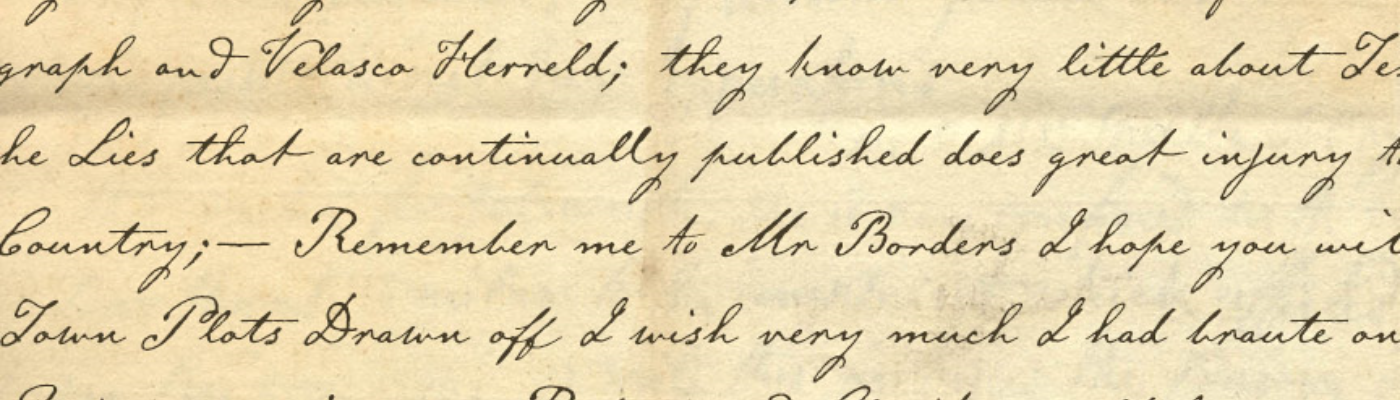 graph and Velasco Herreld; they know very little about
he Lies that are continually published does great injury
Country;— Remember me to Mr Borders I hope you
Town Plots Drawn off I wish very much I had braute